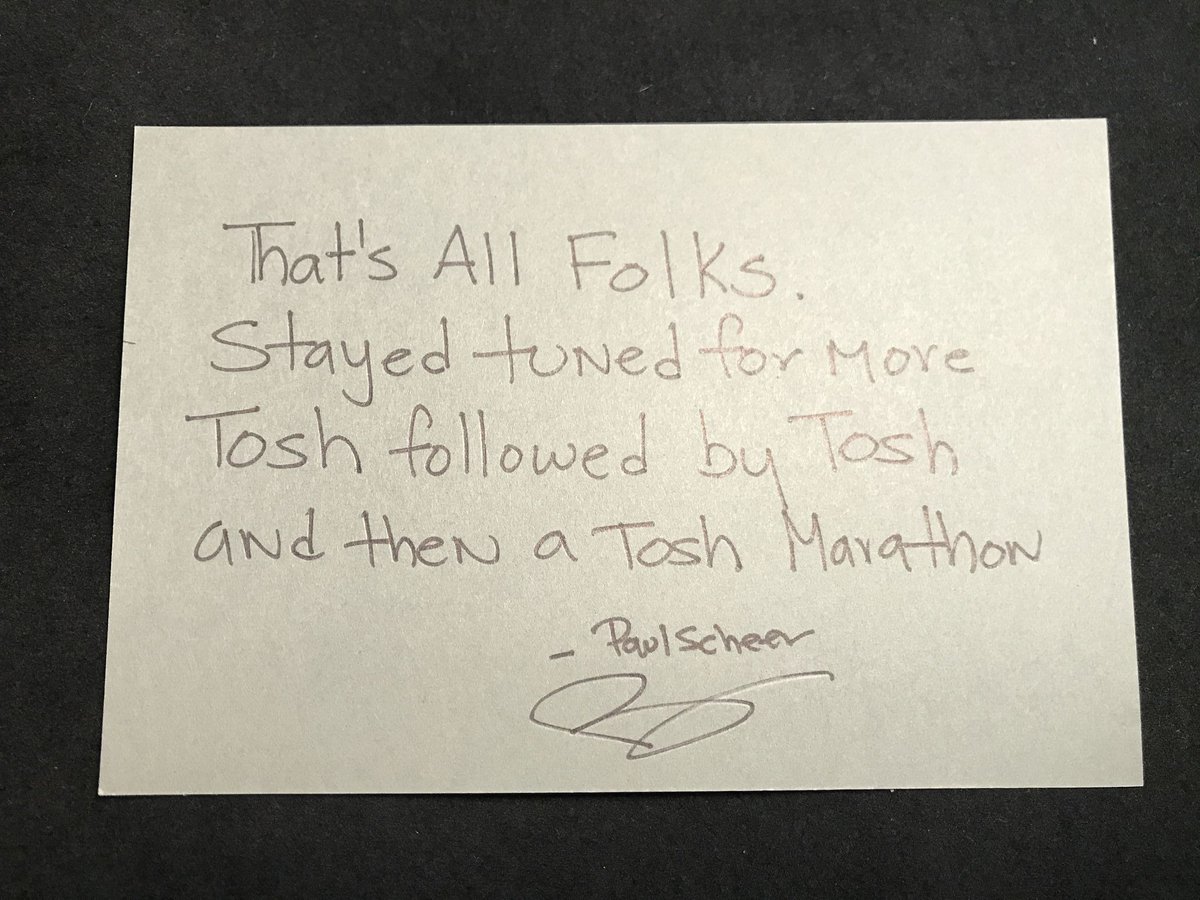 That's All Folks.
Stayed tuned for More
Tosh followed by Tosh
and then a Tosh Marathon
- Paul Scheer